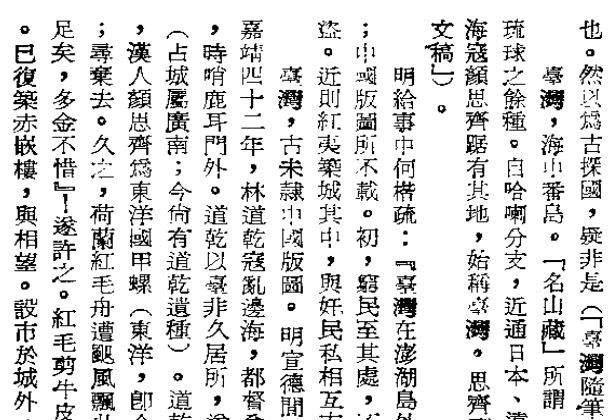 也。然以爲古探國,疑非是(「臺灣隨筆
臺灣,海中番島。「名山藏」所謂
琉球之餘種。自哈喇分支,近通日本、
海寇顏思齊踞有其地,始稱臺灣。思齊
文稿」)。
明給事中何楷疏:『臺灣在澎湖島外
;中國版圖所不載。初,窮民至其處,
盜。近則紅夷築城其中,與奸民私相互市
臺灣,古未隸中國版圖。明宣德間
嘉靖四十二年,林道乾寇亂邊海,都督
,時哨鹿耳門外。道乾以臺非久居所,
(占城屬廣南;今尙有道乾遺種)。道乾
,漢人顏思齊爲東洋國甲螺(東洋,卽
;尋棄去。久之,荷蘭紅毛舟遭颶風飄
足矣,多金不惜』!遂許之。紅毛剪牛皮
。已復築赤嵌樓,與相望。設市於城外